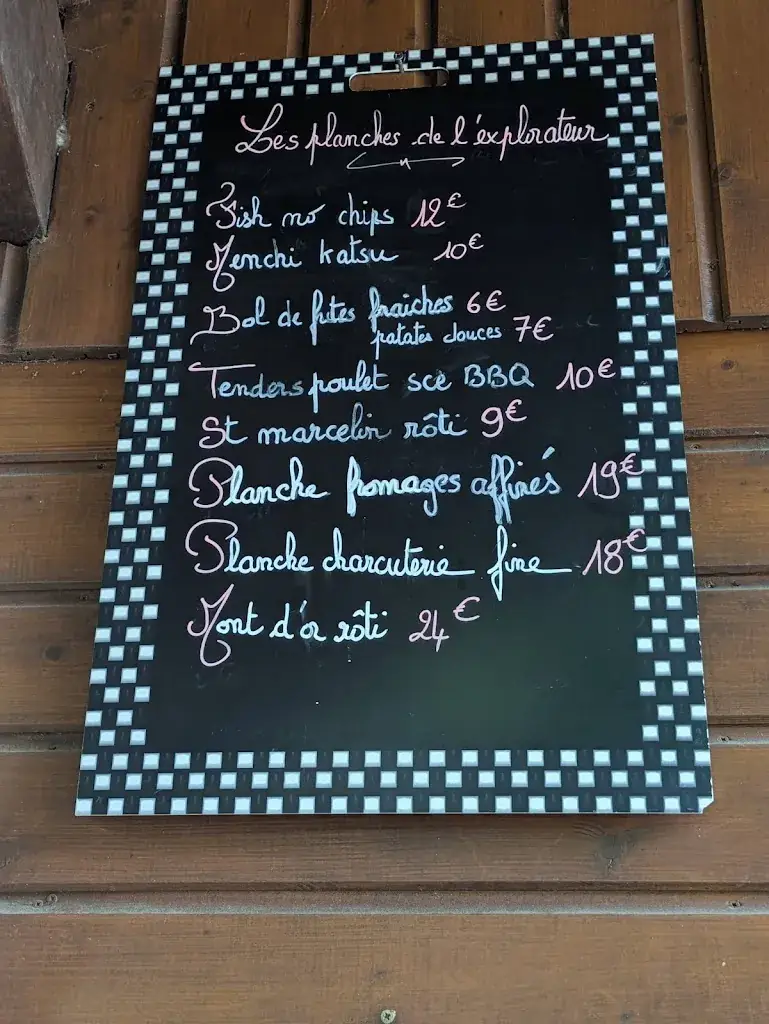 Les planches de l'explorateur
Fish no chips 12€
Menchi katsu 10€
Bol de frites fraiches 6€
patates douces 7€
Tenders poulet sce BBQ 10€
St marcelin rôti 9€
Planche fromages affinés 19€
Planche charcuterie fine 18€
Mont d'or rôti 24€